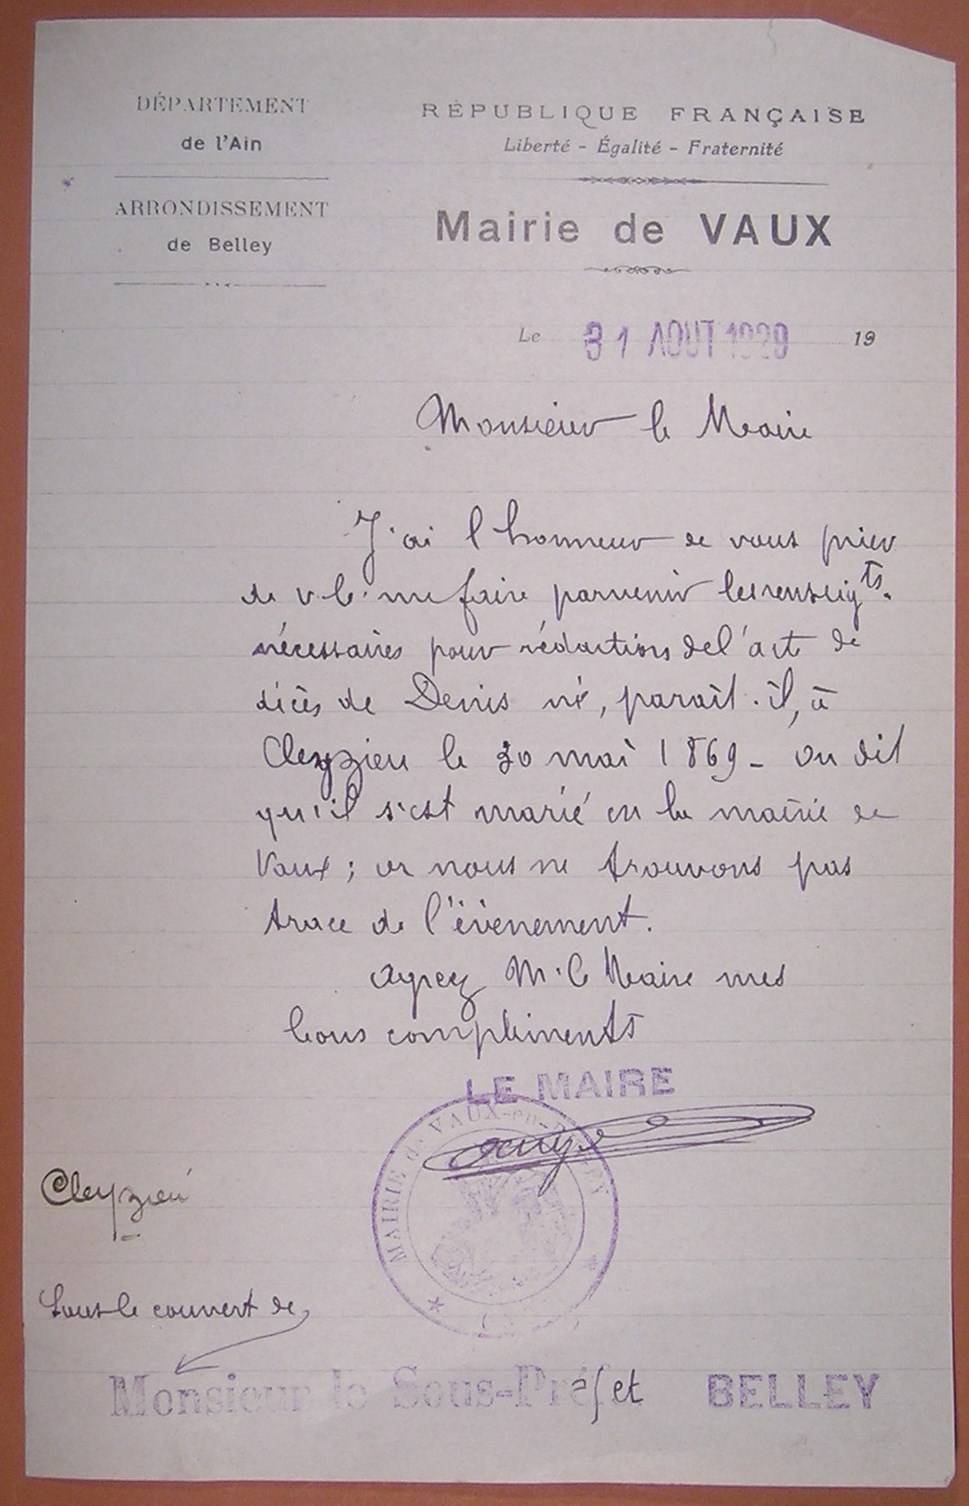 DÉPARTEMENT
de l'Ain
ARRONDISSEMENT
de Belley
RÉPUBLIQUE FRANÇAISE
Liberté - Égalité - Fraternité
Mairie de VAUX
Le 31 AOUT 1929 19
Monsieur le Maire
J'ai l'honneur de vous prier
de v.b. me faire parvenir les renseigts.
nécessaires pour rédaction de l'acte de
décès de Denis né, paraît-il, à
Cleyzieu le 30 mai 1869 - On dit
qu'il s'est marié en la mairie de
Vaux ; or nous ne trouvons pas
trace de l'évènement.
Agréez M. le Maire mes
bons compliments
LE MAIRE
MAIRIE de VAUX-en-BUGEY
Cleyzieu
Sous le couvert de
Monsieur le Sous-Préfet BELLEY